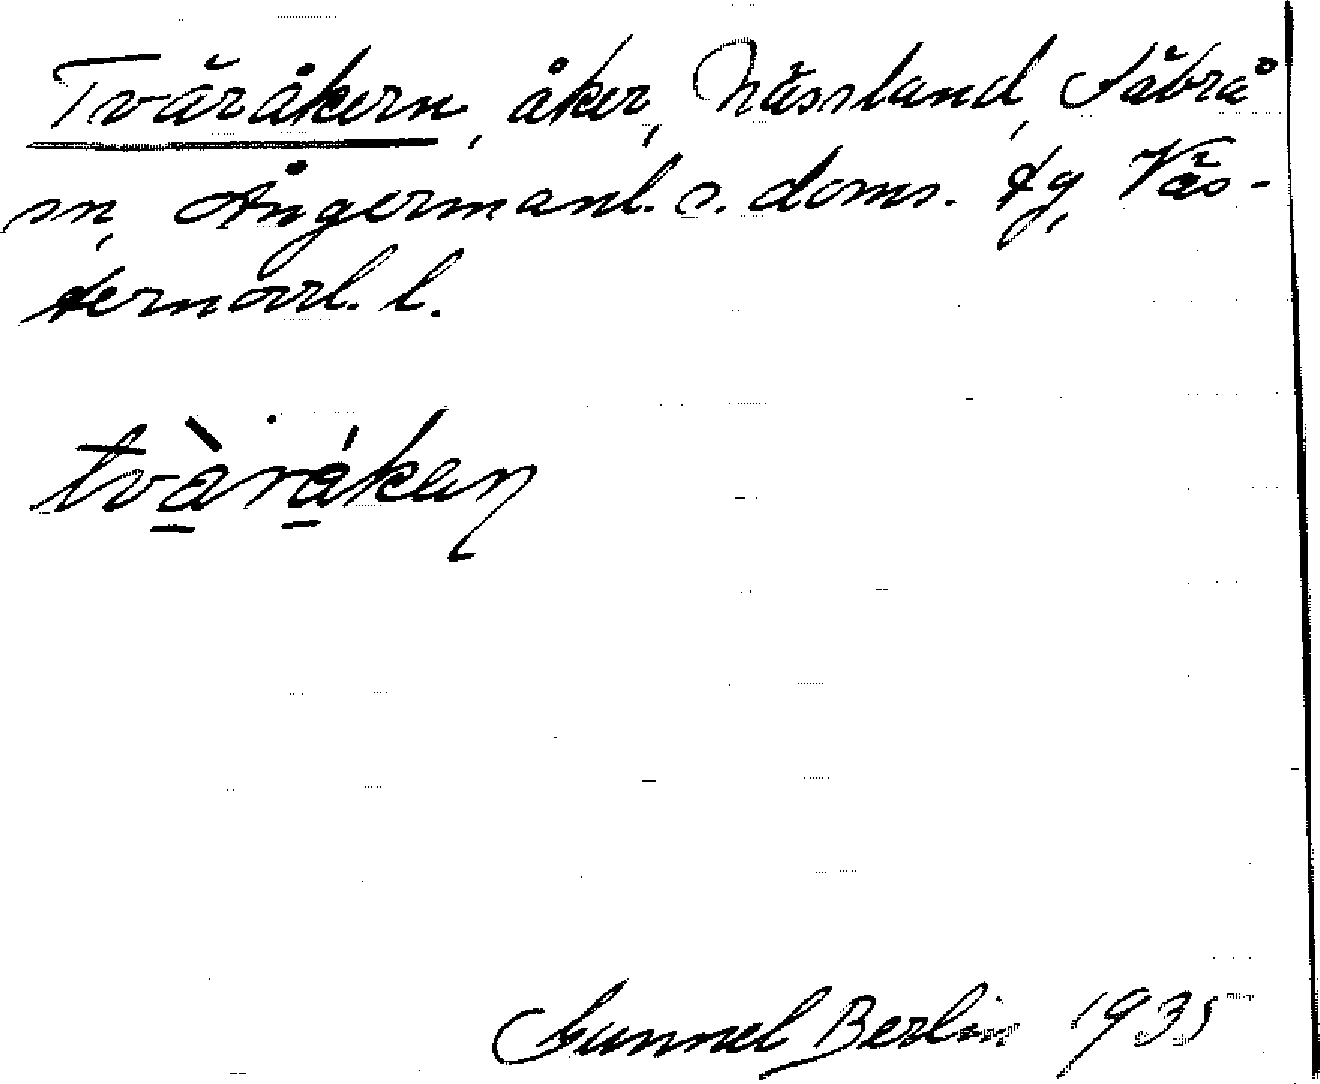 Tväråkern, åker, Nässland, Säbrå
sn, Ångermanl. s. doms. tg, Väs-
ternorrl. l.
tvàråkaɳ
Gunnel Berlin 1935